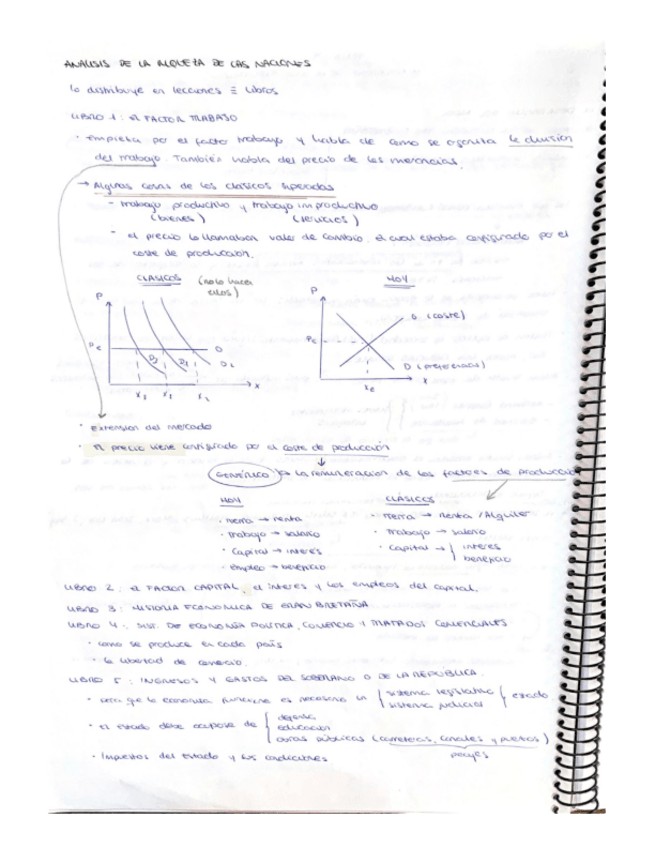 ANÁLISIS DE LA RIQUEZA DE LAS NACIONES
lo distribuye en lecciones = Libros
LIBRO 1: EL FACTOR TRABAJO
· empieza por el facto trabajo y habla de como se la división
del trabajo. También habla del precio de las mercancías.
→ Algunas cosas de los clásicos superadas
- trabajo productivo y trabajo improductivo
(bienes) (servicios)
- el precio lo llamaban valor de cambio, el cual estaba configurado por el
coste de producción.
CLÁSICOS (no lo hacen ellos) HOY
P P
O (coste)
Pc Pe
D (preferencias)
x xe x
· extension del mercado
· El precio viene configurado por el coste de producción
GENÉRICO la remuneración de los factores de producción
HOY CLÁSICOS
· tierra → renta · tierra → renta / Alquiler
· trabajo → salario · trabajo → salario
· capital → interés · capital → { interés
· empleo → beneficio beneficio
LIBRO 2: EL FACTOR CAPITAL, el interés y los empleos del capital.
LIBRO 3: HISTORIA ECONOMICA DE GRAN BRETAÑA
LIBRO 4: SIST. DE ECONOMÍA POLÍTICA, COMERCIO Y TRATADOS COMERCIALES
· como se produce en cada país
· la libertad de comercio.
LIBRO 5: INGRESOS Y GASTOS DEL SOBERANO O DE LA REPÚBLICA.
· para que la economía funcione es necesario un { sistema legislativo } estado
sistema judicial
· el Estado debe ocuparse de { defensa
educación
obras públicas (carreteras, canales y puertos)
· Impuestos del estado y sus peajes